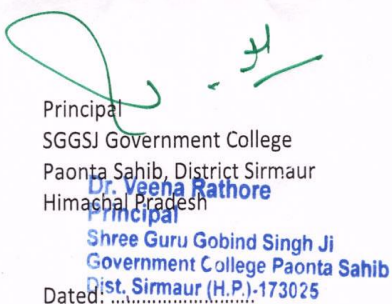 Principal
SGGSJ Government College
Paonta Sahib, District Sirmaur
Himachal Pradesh
Dr. Veena Rathore
Principal
Shree Guru Gobind Singh Ji
Government College Paonta Sahib
Dist. Sirmaur (H.P.)-173025
Dated: ..............................